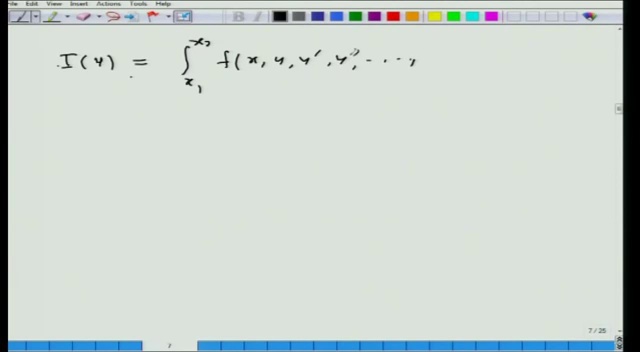 File View Insert Actions Tools Help
I(y) = ∫_{x₁}^{x₂} f(x, y, y', y'', -...,
7 / 25
7